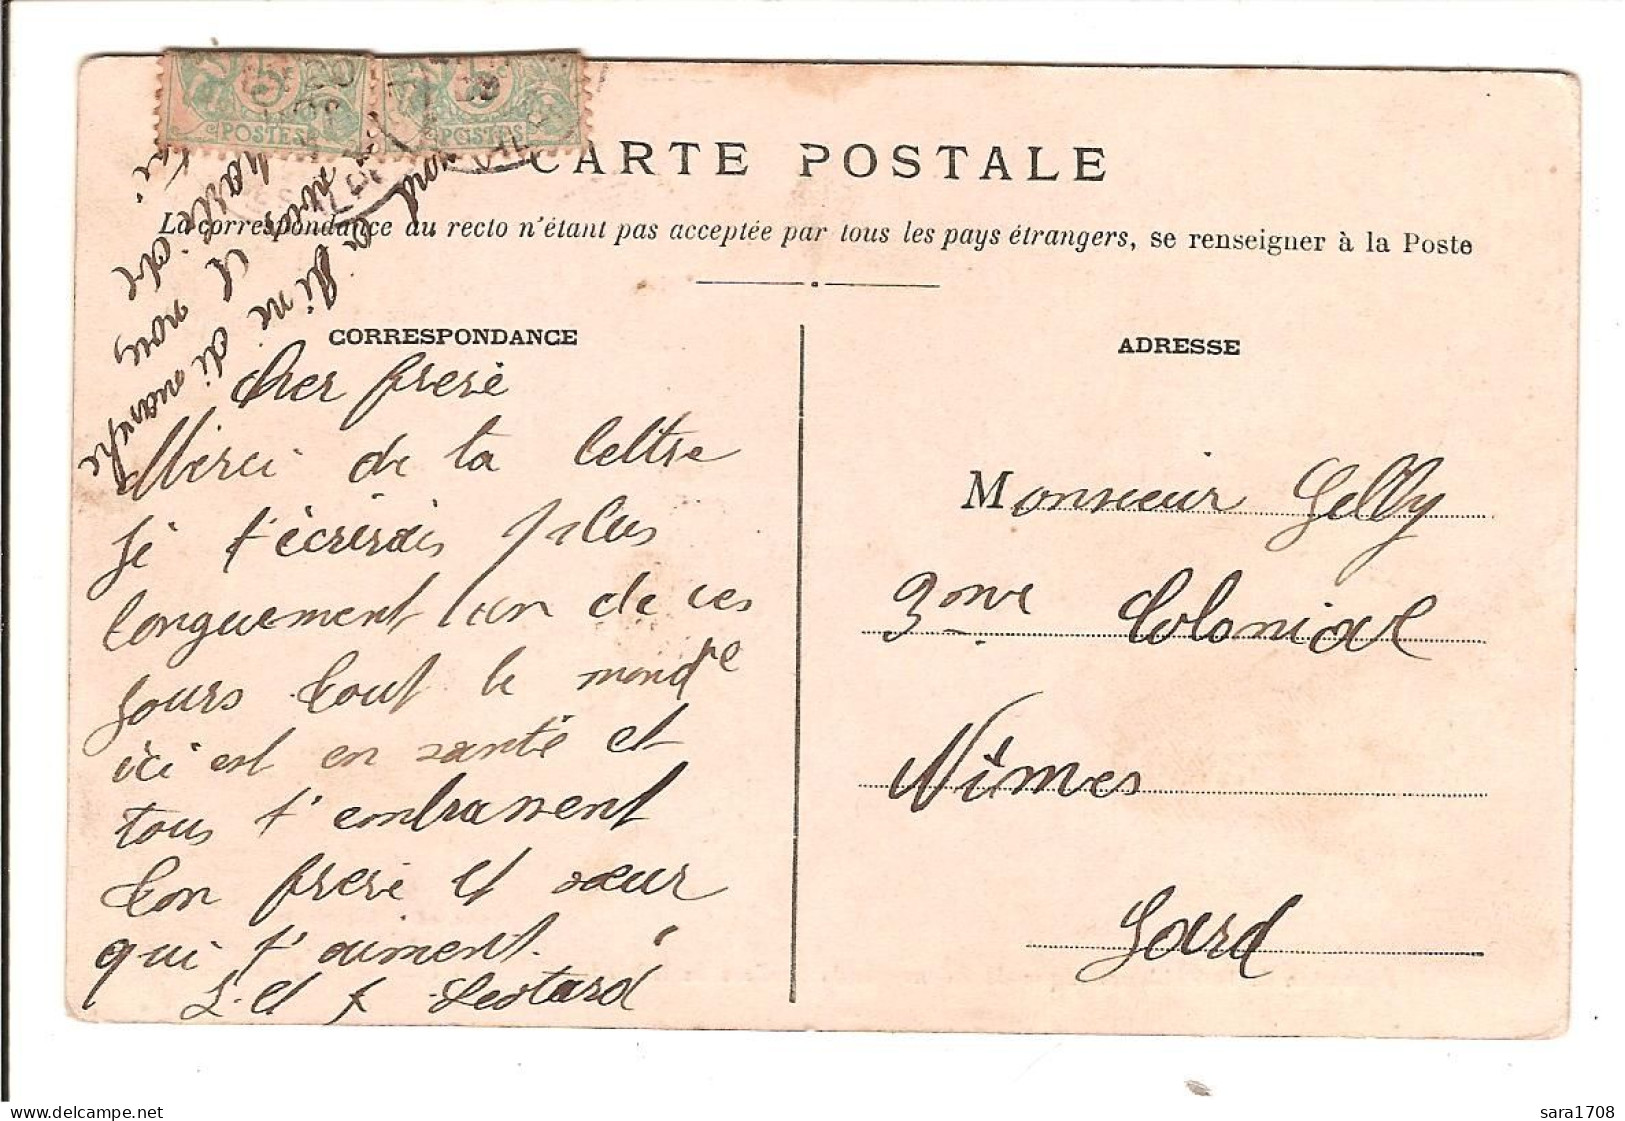 POSTES POSTES
CARTE POSTALE
La correspondance au recto n'étant pas acceptée par tous les pays étrangers, se renseigner à la Poste
CORRESPONDANCE
Cher frere
Merci de ta lettre
je t'écrirais plus
longuement l'un de ces
jours tout le monde
ici est en santé et
tous t'embrassent
ton frere et sœur
qui t'aiment.
L. et Leotard
et nous
dimanche
ADRESSE
Monsieur Gelly
3ome Coloniale
Nîmes
Gard
delcampe.net
sara1708